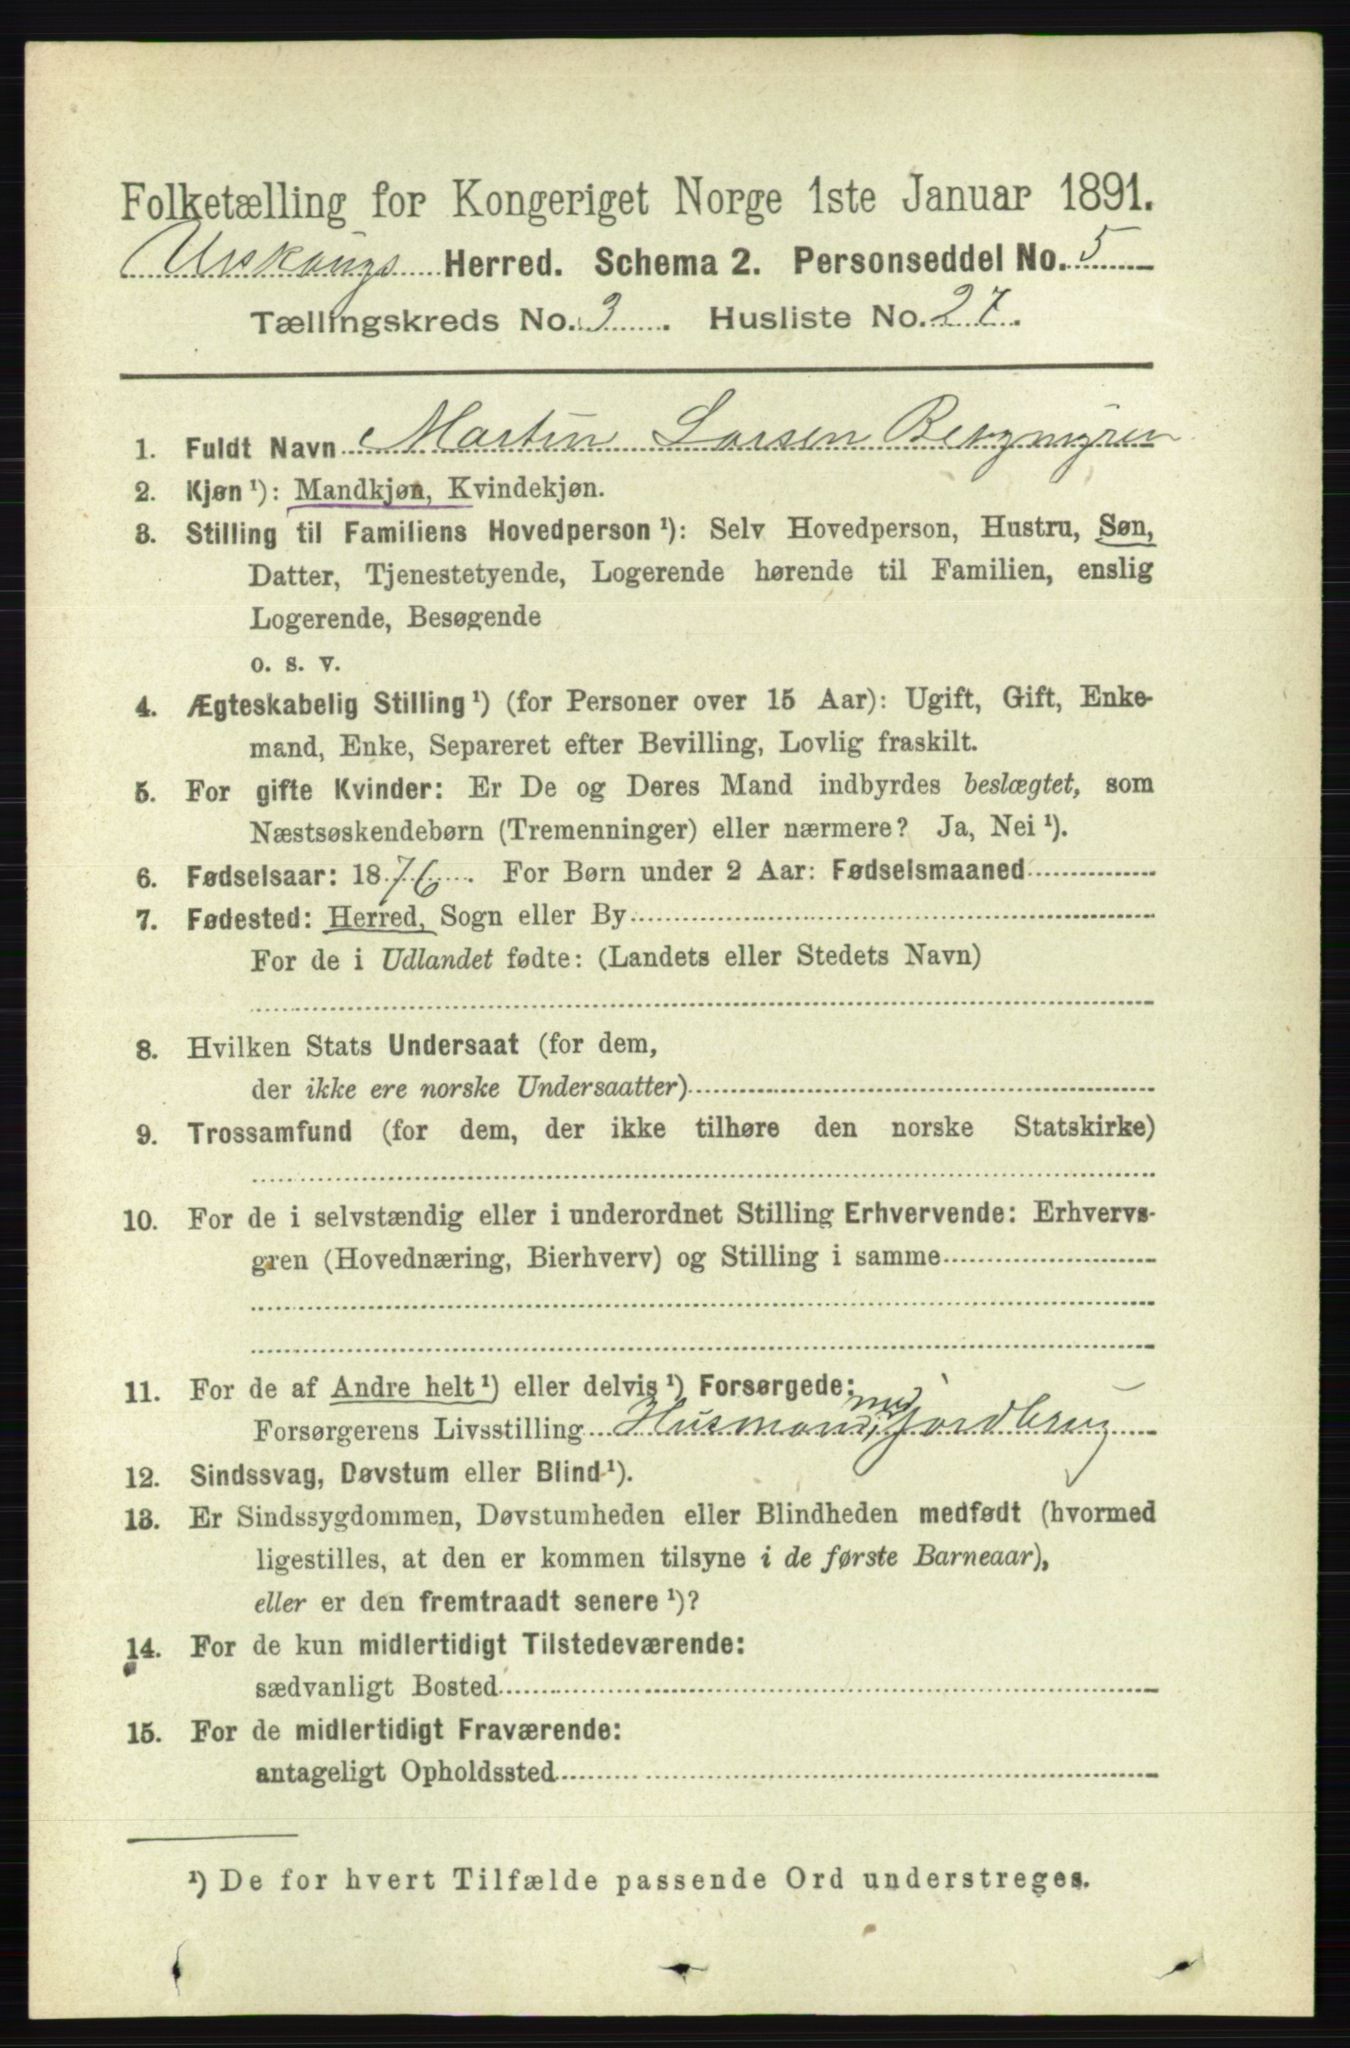 Folketælling for Kongeriget Norge 1ste Januar 1891.
Urskougs Herred. Schema 2. Personseddel No. 5
Tællingskreds No. 3. Husliste No. 27.
1. Fuldt Navn Martin Larsen Bergmyren
2. Kjøn ¹): Mandkjøn, Kvindekjøn.
3. Stilling til Familiens Hovedperson ¹): Selv Hovedperson, Hustru, Søn,
Datter, Tjenestetyende, Logerende hørende til Familien, enslig
Logerende, Besøgende
o. s. v.
4. Ægteskabelig Stilling ¹) (for Personer over 15 Aar): Ugift, Gift, Enke-
mand, Enke, Separeret efter Bevilling, Lovlig fraskilt.
5. For gifte Kvinder: Er De og Deres Mand indbyrdes beslægtet, som
Næstsøskendebørn (Tremenninger) eller nærmere? Ja, Nei ¹).
6. Fødselsaar: 1876. For Børn under 2 Aar: Fødselsmaaned
7. Fødested: Herred, Sogn eller By
For de i Udlandet fødte: (Landets eller Stedets Navn)
8. Hvilken Stats Undersaat (for dem,
der ikke ere norske Undersaatter)
9. Trossamfund (for dem, der ikke tilhøre den norske Statskirke)
10. For de i selvstændig eller i underordnet Stilling Erhvervende: Erhvervs-
gren (Hovednæring, Bierhverv) og Stilling i samme
11. For de af Andre helt ¹) eller delvis ¹) Forsørgede:
Forsørgerens Livsstilling Husmand, med Jordbrug
12. Sindssvag, Døvstum eller Blind ¹).
13. Er Sindssygdommen, Døvstumheden eller Blindheden medfødt (hvormed
ligestilles, at den er kommen tilsyne i de første Barneaar),
eller er den fremtraadt senere ¹)?
14. For de kun midlertidigt Tilstedeværende:
sædvanligt Bosted
15. For de midlertidigt Fraværende:
antageligt Opholdssted
¹) De for hvert Tilfælde passende Ord understreges.